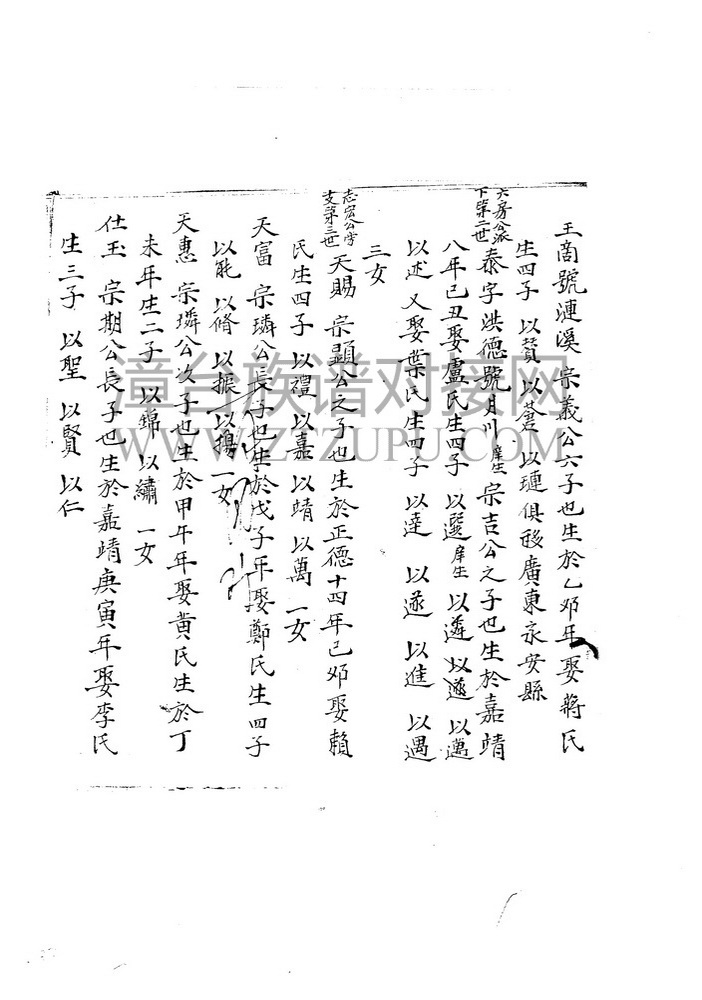 王商號漣溪宗義公六子也生於乙夘年娶蔣氏
生四子 以贊 以蒼 以璉俱移廣東永安縣
六房公派
下第二世
泰字洪德號月川庠生宗吉公之子也生於嘉靖
八年己丑娶盧氏生四子 以選庠生 以遴 以邁
以述 又娶葉氏生四子 以達 以遂 以進 以遇
三女
志宏公学
支第三世
天賜 宗顯公之子也生於正德十四年己夘娶賴
氏生四子 以禮 以嘉 以靖 以萬 一女
天富 宗璘公長子也生於戊子年娶鄭氏生四子
以能 以脩 以振 以揚 一女
天惠 宗璘公次子也生於甲午年娶黄氏生於丁
未年生二子 以錦 以繡 一女
仕玉 宗期公長子也生於嘉靖庚寅年娶李氏
生三子 以聖 以賢 以仁
漳台族谱对接网
WWW.ZTZUPU.COM